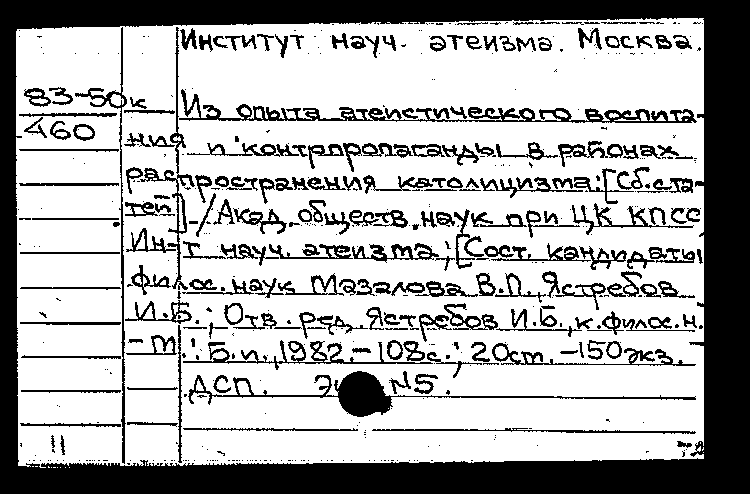 Институт науч. атеизма. Москва.
83-50к
460
Из опыта атеистического воспита-
ния и контрпропаганды в районах
распространения католицизма: [Сб. ста-
тей] / Акад. обществ. наук при ЦК КПСС
Ин-т науч. атеизма; [Сост. кандидаты
филос. наук Мазалова В.П., Ястребов
И.Б.; Отв. ред. Ястребов И.Б., к. филос. н.
- М.: Б.и., 1982. - 108с.; 20см. - 150экз. -
ДСП. N5.
11